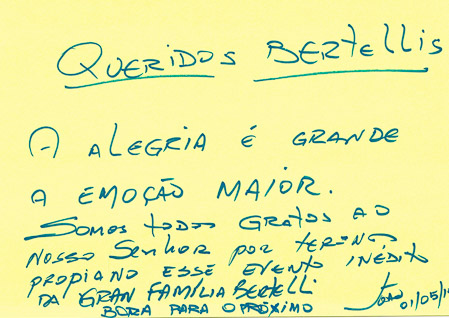 QUERIDOS BERTELLIS
A ALEGRIA É GRANDE
A EMOÇÃO MAIOR.
SOMOS TODOS GRATOS AO
NOSSO SENHOR POR TERMOS
PROPIANO ESSE EVENTO INÉDITO
DA GRAN FAMÍLIA BERTELLI
BORA PARA O PRÓXIMO
01/05/1